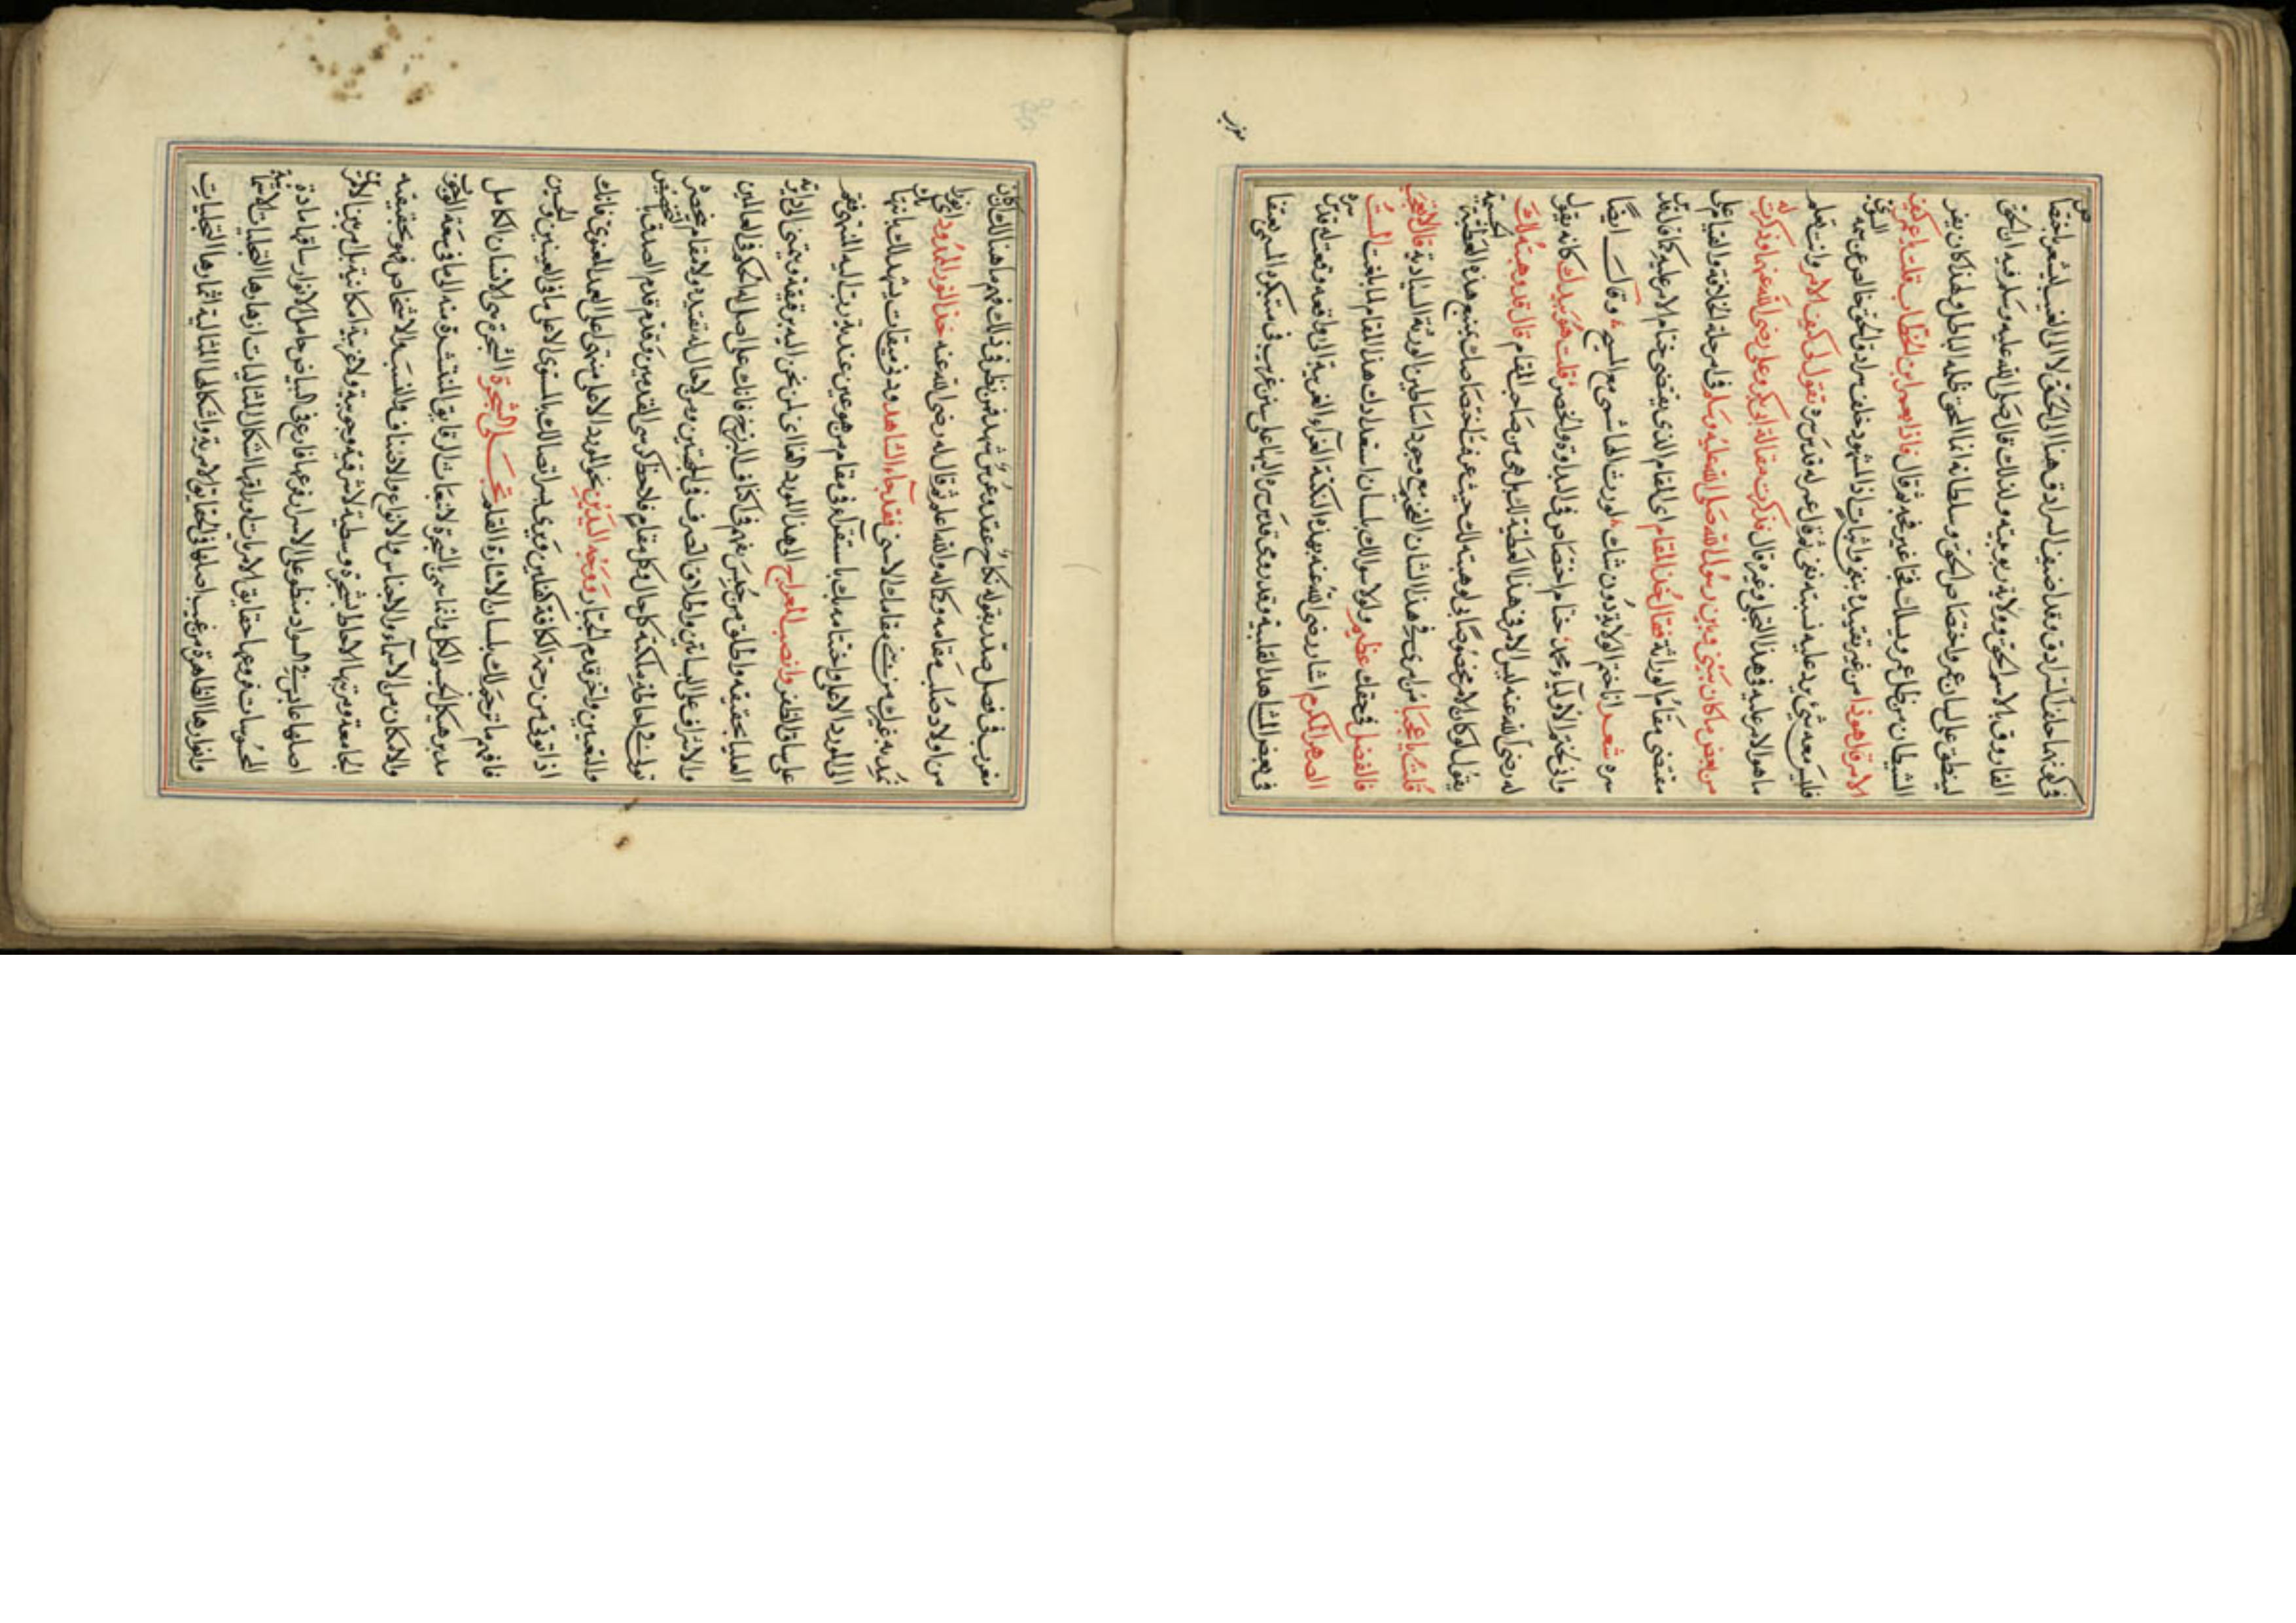 في كونهما حاملا السرادق وقد اضيف السرادق هنا الى الحق لا الى الغيب ليشعر باختصاص
الفاروق بالاسم الحق وولاية ربوبيته ولذلك قال صلى الله عليه وسلم فيه ان الحق
لينطق على لسان عمر واختصاص الحق وسلطانه انما الحق ظله الباطل ولهذا كان يفر
الشيطان من ظل عمر ويسلك فجا غير فجه ثم قال فاذا بعمر ابن الخطاب قلت يا عمر كيف
الامر قال هو ذا من غير تقييد بنفي واثبات اذ المشهود خلف سرادق الحق خالص عن سمة السوى
فليس معه شيء يرد عليه نسبته نفي ثم قال عمر له قدس سره تقول لي كيف الامر وانت تعلم
ما هو الامر عليه في هذا التجلي وغيره قال فذكرت مقالة ابي بكر وعلي رضي الله عنهما وذكرت له
من بعض ما كان بيني وبين رسول الله صلى الله عليه وسلم في امر حلة الخلافة والقيام على
مقتضى مقام الوراثة فقال خذ المقام اي المقام الذي يقتضي ختام الامر عليه كما قال قدس
سره شعر انا ختم الولاية دون شك لورث الهاشمي مع المسيح وقال ايضا
واني لختم الاولياء محمد ختام اختصاص في البداوة والحضر قلت هو بيدك كانه يقول
له رضي الله عنه ليس الامر في هذا العطية اليك بل هي من صاحب المقام قال قد وهبته لك
يقول لو كان الامر مخصوصا بي لوهبته لك حيث عرفت اختصاصك بجميع هذه العطية الجسيمة
قلت يا عجبا من امري في هذا الشان الفخيم مع وجود اساطين الورثة السيادية قال لا تعجب
فالفضل في حقك عظيم ولولا سؤالك بلسان استعدادك هذا المقام لما بلغت الست
الصهر المكرم اشار رضي الله عنه بهذه النكتة الغراء الغريبة الى واقعة وقعت له قدس سره
في بعض المشاهد القلبية وقد رمى قدس سره اليها على سنن غريب في مبتكره المسمى بعنقا
مغرب
مغرب في فصل صدره بقوله نكاح عقد وعرس شهد فمن نظر في ذلك فهم ما هنالك وكان
من اولاد صلب مقامه وكماله والله اعلم ثم قال له رضي الله عنه خذ النور الممدود اي نورا
تمد به غيرك من تحت مقامك الاسنى فقد جاء الشاهد ودنى ميقات يشهدك بانتهاء
الى المورد الاعلى واختتامه بك باستقراء في مقام من هو عين عنده رب اليه المنتهى فقم
على ساق الظفر وانصب المعراج الى هذا المورد الغاائي لمن تحن اليه برقيقة وينتمي الى دائرته
العليا بحقيقة واطلق من حبس منهم في اكناف البرزخ فانك على اصل له الحكم في العالمين
والاشراف على النسابتين واطلاق التصرف في الجهتين ومن لا حال له يقيده ولا مقام يحصره
تولى في احاطة ملكته كل حال وكل مقام فلاحظ كرسي القدمين وقدم قدم الصدق بالتخصيص
والتعيين واخر قدم الجبار ووجه اليدين نحو المورد الاعلى منتهى اعلى الجد المعنوي فانك
اذا توفي من رحمة الكافة كفلين وترى سر اتصالك بالمستوى الاعلى ما في العينين والحسين
فافهم ما ترجم لك بلسان الاشارة القلم تجلي الشجرة الشجرة هي الانسان الكامل
مدبر هيكل الجسم الكل وانما سمي بالشجرة لانبعاث الرقايق المنتشرة منه الى ما في سعة الوجوب
والامكان من الاسماء والاجناس والانواع والاصناف والنسب والاشخاص فهو بحقيقته
الجامعة ومرتبتها الاحاط بشجرة وسطية لا شرقية وجوبية ولا غربية امكانية بل امر بين الامرين
اصلها ثابت في السواد منطو على الاسرار وفرعها فارع في البياض حامل الانوار ساقها مادة
المحسوسات فروعها حقايق الامريات اوراقها اشكال المثاليات ازهارها التجليات الاسمائية
وانوارها الظاهرة من غيب اصلها في الحقايق الامرية واشكالها المثالية اثمارها التجليات